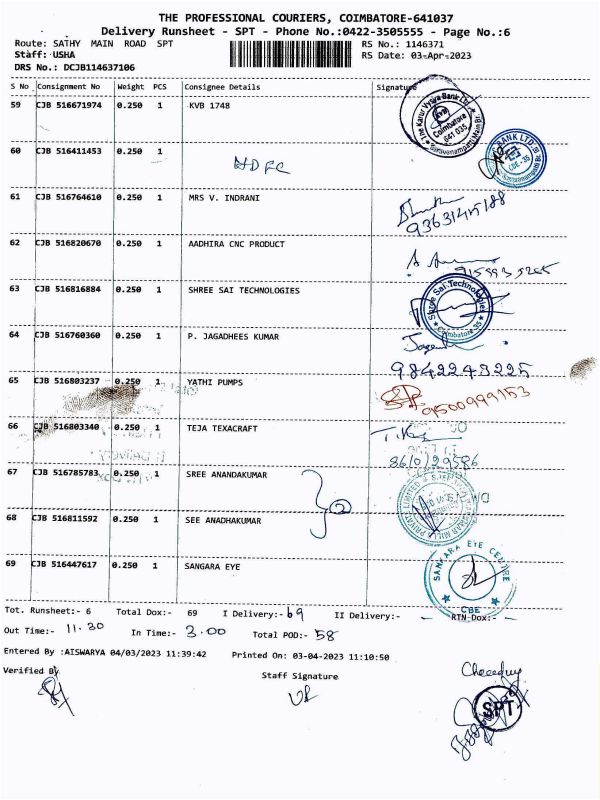 THE PROFESSIONAL COURIERS, COIMBATORE-641037
Delivery Runsheet - SPT - Phone No.:0422-3505555 - Page No.:6
Route: SATHY MAIN ROAD SPT RS No.: 1146371
Staff: USHA RS Date: 03-Apr-2023
DRS No.: DCJB114637106
S No Consignment No Weight PCS Consignee Details Signature
59 CJB 516671974 0.250 1 KVB 1748
The Karur Vysya Bank Ltd. KVB Coimbatore 641 035 Saravanampatti
60 CJB 516411453 0.250 1 HDFC
BANK LTD CBE-35
61 CJB 516764610 0.250 1 MRS V. INDRANI
62 CJB 516820670 0.250 1 AADHIRA CNC PRODUCT
63 CJB 516816884 0.250 1 SHREE SAI TECHNOLOGIES
Shree Sai Technologies Coimbatore 35
64 CJB 516760360 0.250 1 P. JAGADHEES KUMAR
9842243225
65 CJB 516803237 0.250 1 YATHI PUMPS
66 CJB 516803340 0.250 1 TEJA TEXACRAFT
67 CJB 516785783 0.250 1 SREE ANANDAKUMAR
2
68 CJB 516811592 0.250 1 SEE ANADHAKUMAR
69 CJB 516447617 0.250 1 SANGARA EYE
SANKARA EYE CENTRE CBE
Tot. Runsheet:- 6 Total Dox:- 69 I Delivery:- 69 II Delivery:- RTN Dox:-
Out Time:- 11.30 In Time:- 3.00 Total POD:- 58
Entered By :AISWARYA 04/03/2023 11:39:42 Printed On: 03-04-2023 11:10:50
Verified By Staff Signature
SPT